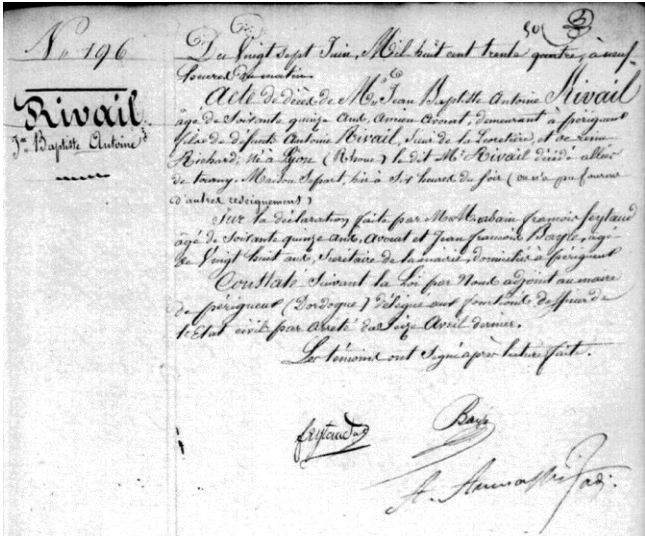 N° 196
Rivail
Jn Baptiste Antoine
50
Du Vingt sept Juin, Mil huit cent trente quatre, à neuf
heures du matin.
Acte de décès de Mr Jean Baptiste Antoine Rivail
âgé de Soixante quinze Ans, Ancien Avocat, demeurant à périgueux
fils de défunts Antoine Rivail, Sieur de la
Richard; né à Lyon (Rhône) le dit Mr Rivail décédé allées
de tourny, Maison Separt, hier à Six heures du soir (on n'a pu fournir
d'autres renseignements)
Sur la déclaration faite par françois feytaud
âgé de Soixante quinze ans, Avocat et Jean françois Bayle, âgé
de Vingt huit ans, Secrétaire de la mairie, domiciliés à périgueux
Constaté Suivant la Loi par Nous adjoint au maire
de périgueux (Dordogne) délégué aux fonctions d'officier de
l'Etat civil par arrêté du Seize Avril dernier.
Les témoins ont Signé après lecture faite.
feytaud
Bayle
adj.